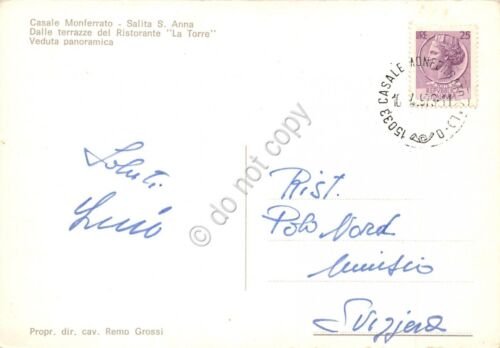 Casale Monferrato - Salita S. Anna
Dalle terrazze del Ristorante "La Torre"
Veduta panoramica
LIRE 25
15033 CASALE MONF
do not copy
Saluti
Rist.
Polo Nord
Svizzera
Propr. dir. cav. Remo Grossi